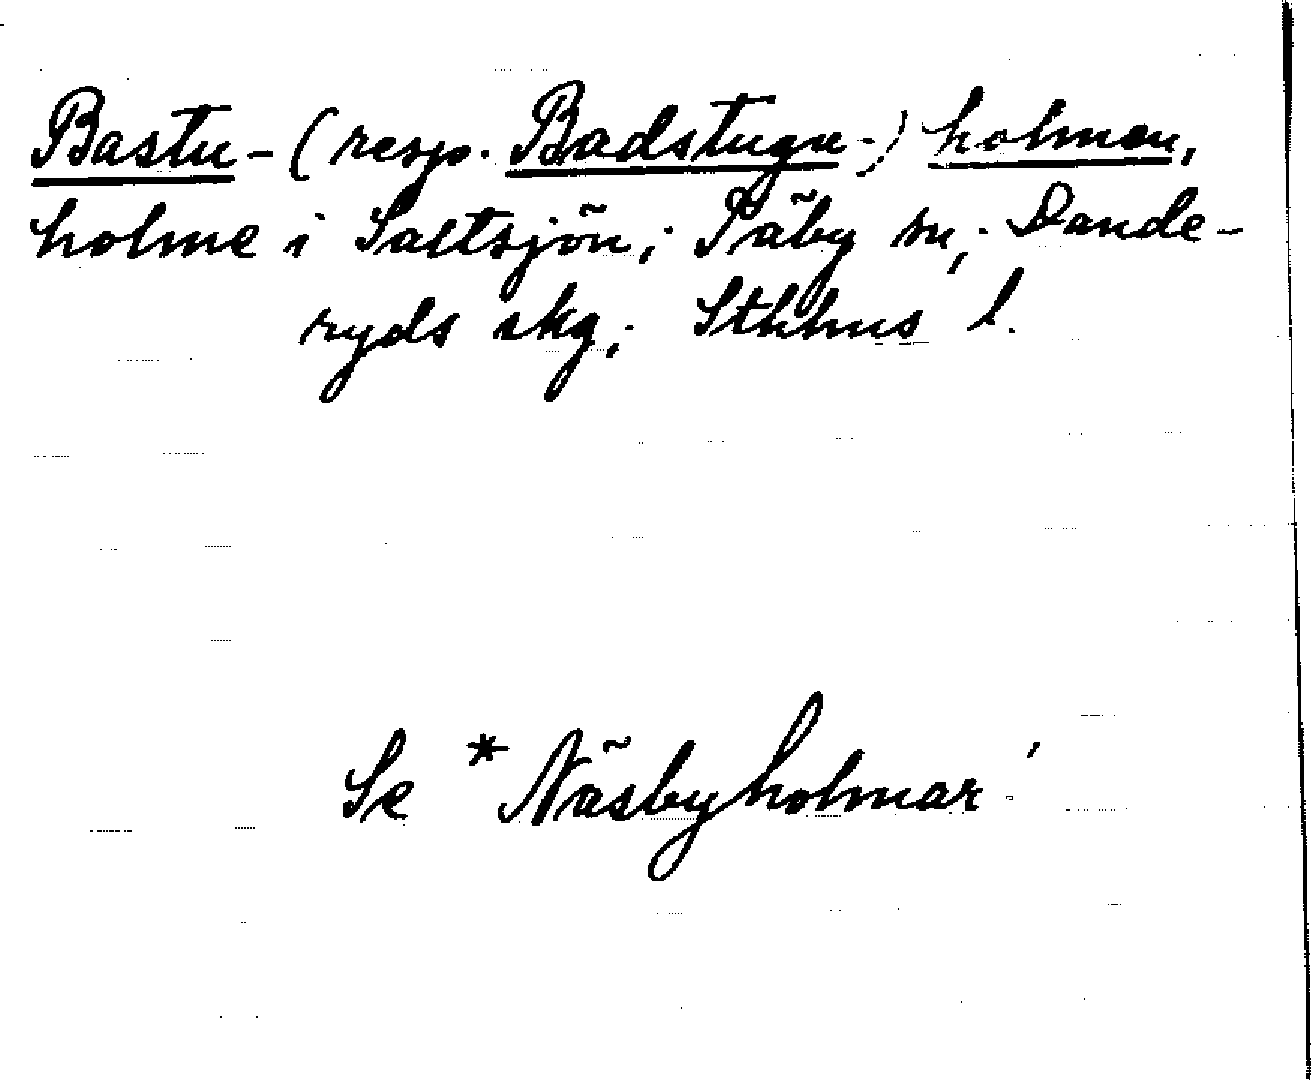 Bastu- (resp. Badstugu-) holmen,
holme i Saltsjön; Täby sn; Dande-
ryds skg; Sthlms l.
Se *Näsbyholmar